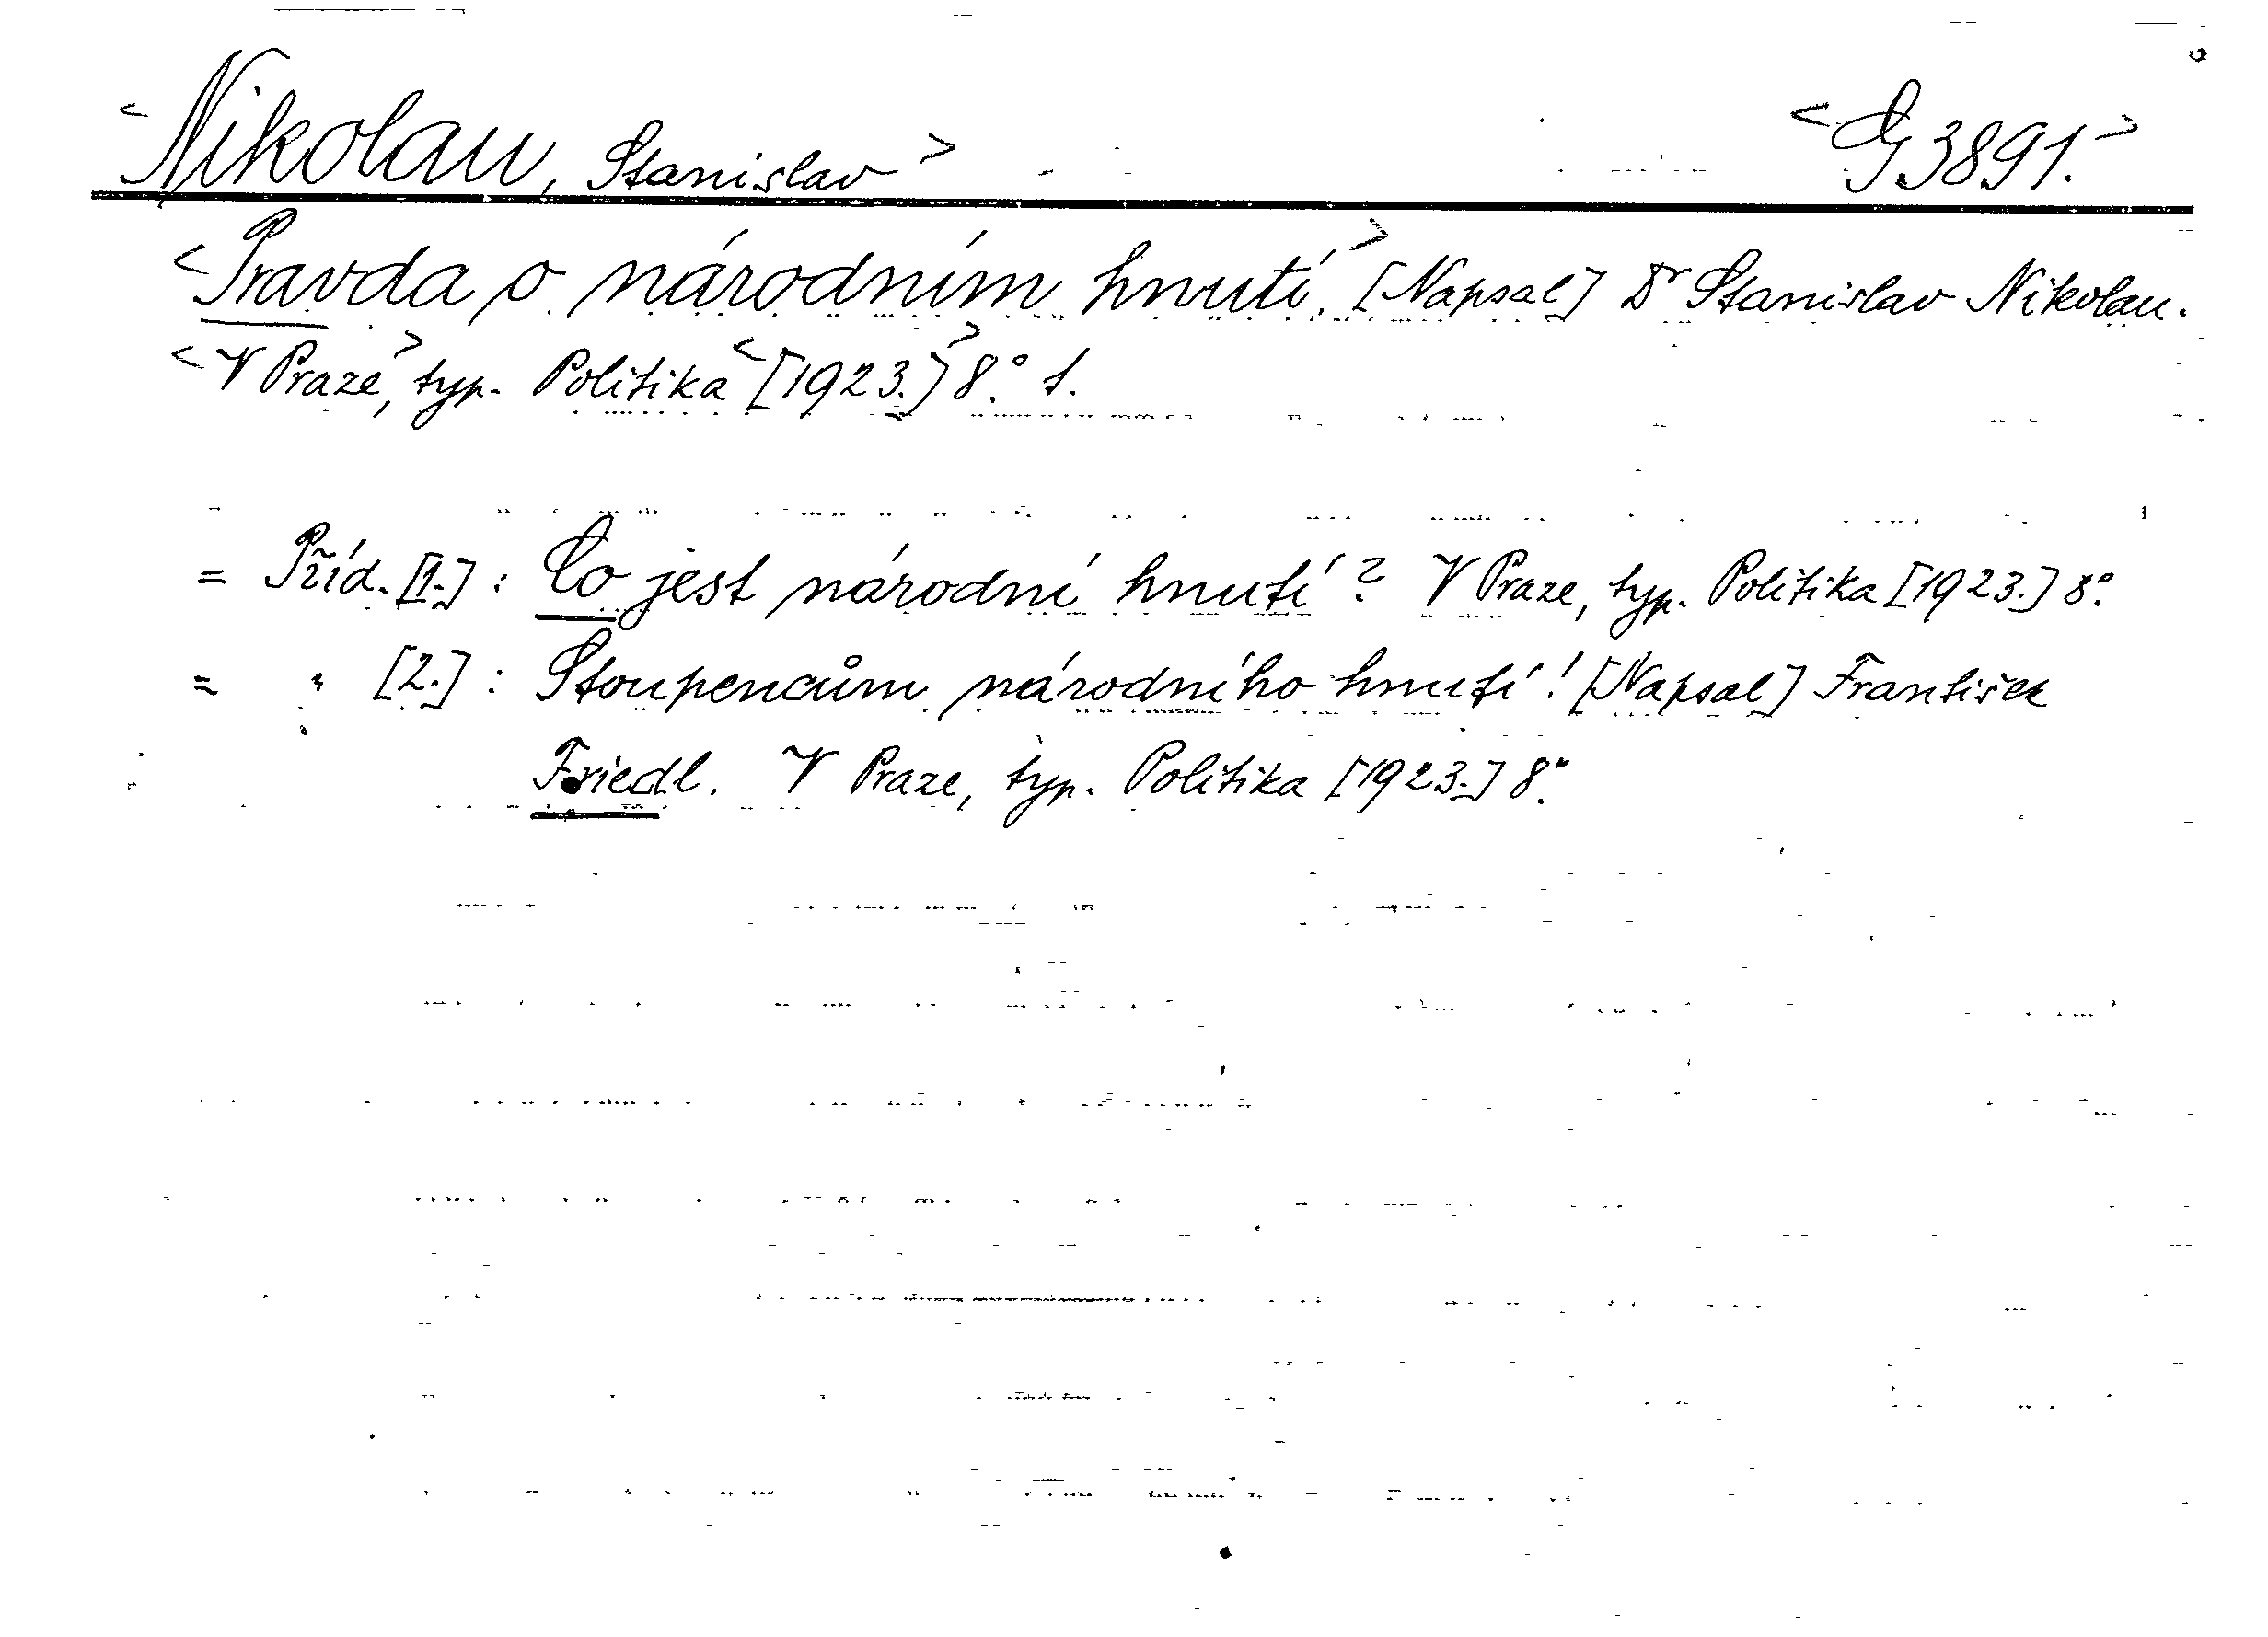 <Nikolau, Stanislav> <G 3891.>
<Pravda o národním hnutí.> [Napsal] Dr Stanislav Nikolau.
<V Praze,> typ. Politika <[1923.]> 8.° 1.
= Příd. [1.] : Co jest národní hnutí? V Praze, typ. Politika [1923.] 8.°
= " [2.] : Stoupencům národního hnutí! [Napsal] František
Friedl. V Praze, typ. Politika [1923.] 8.°